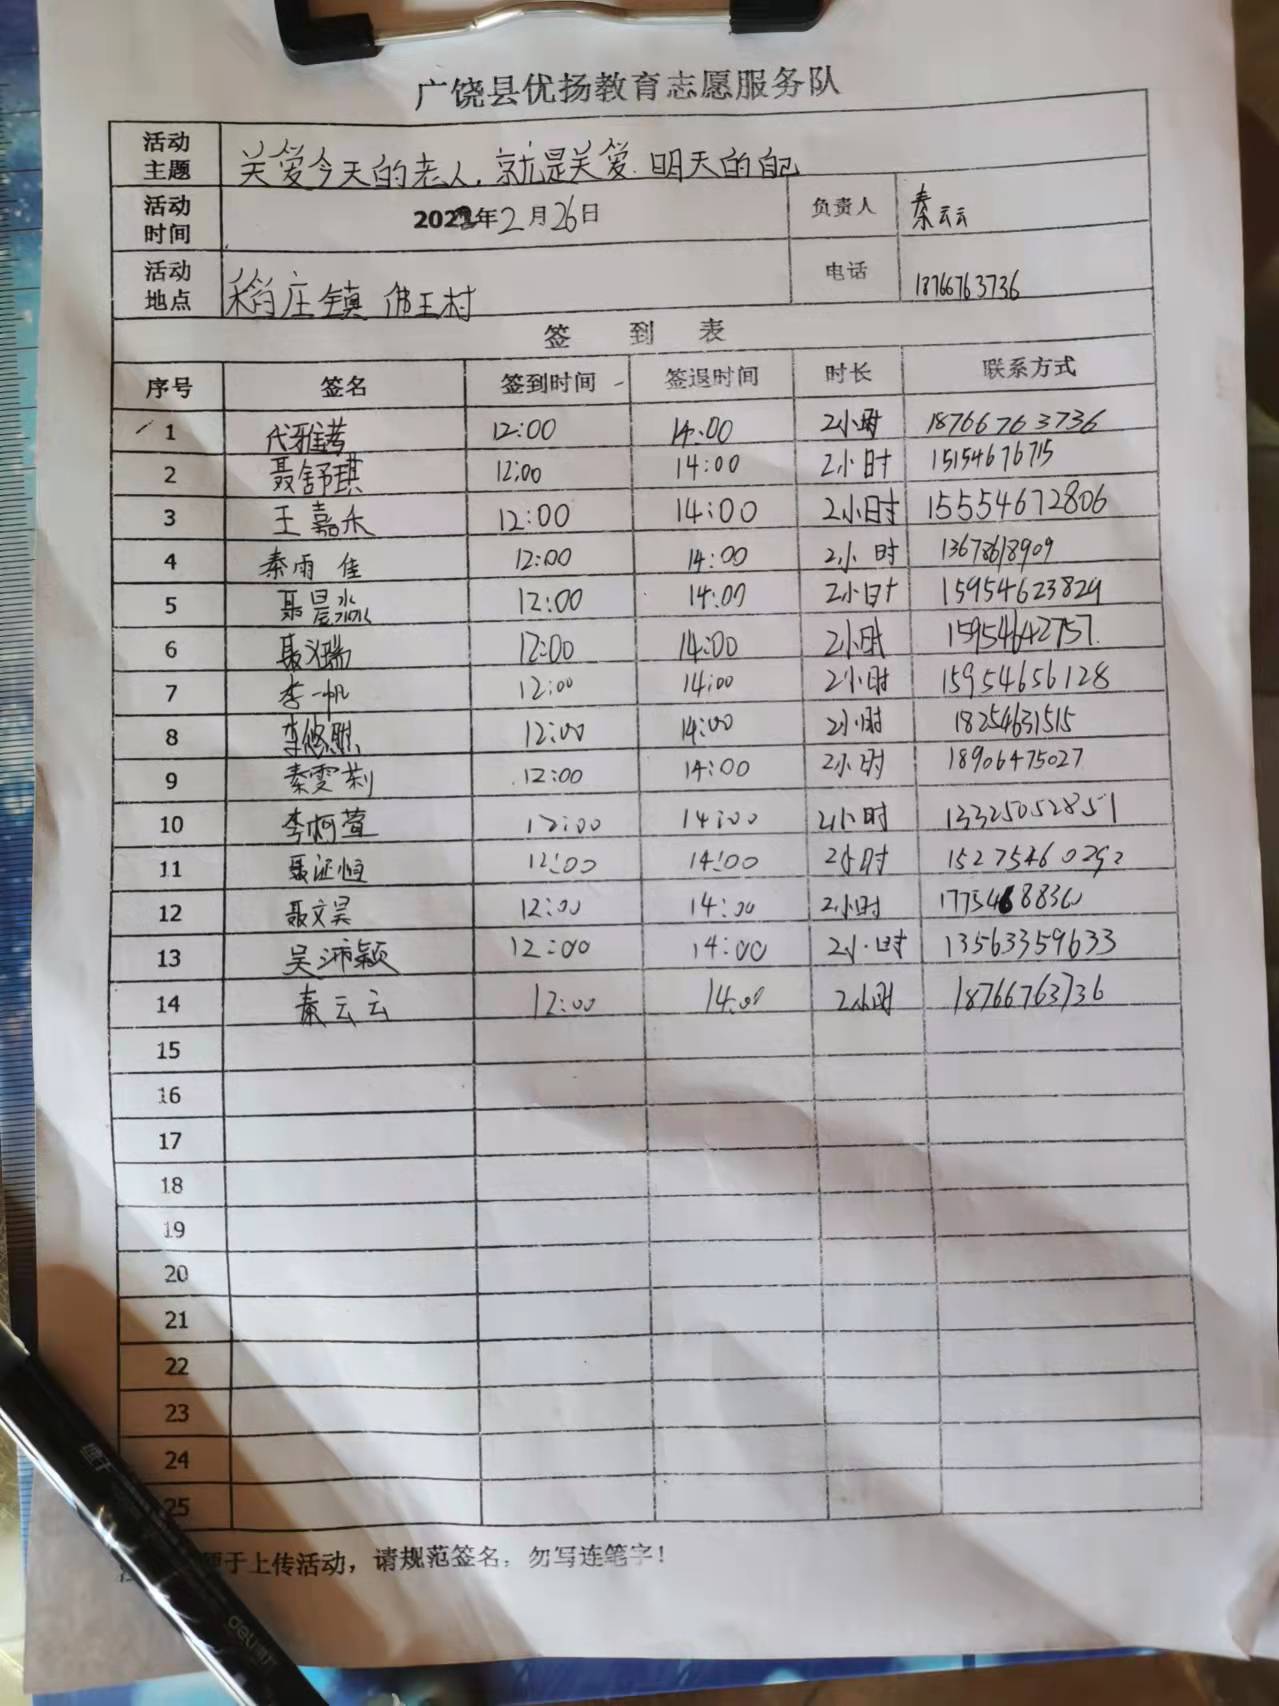 广饶县优扬教育志愿服务队
活动主题 关爱今天的老人,就是关爱.明天的自己
活动时间 2022年2月26日 负责人 秦云云
活动地点 稻庄镇 佛王村 电话 18766763736
签 到 表
序号 签名 签到时间 签退时间 时长 联系方式
1 代雅诺 12:00 14:00 2小时 18766763736
2 聂舒琪 12:00 14:00 2小时 15154676715
3 王嘉禾 12:00 14:00 2小时 15554672806
4 秦雨佳 12:00 14:00 2小时 13678618909
5 聂昱淼 12:00 14:00 2小时 15954623829
6 聂汝瑞 12:00 14:00 2小时 15954642757.
7 李一帆 12:00 14:00 2小时 15954656128
8 李悠熙 12:00 14:00 2小时 18254631515
9 秦雯莉 12:00 14:00 2小时 18906475027
10 李柯萱 12:00 14:00 2小时 13325052851
11 12:00 14:00 2小时
12 聂文昊 12:00 14:00 2小时
13 吴沛颖 12:00 14:00 2小时 13563359633
14 秦云云 12:00 14:00 2小时 18766763736
15
16
17
18
19
20
21
22
23
24
25
便于上传活动，请规范签名，勿写连笔字！
deli